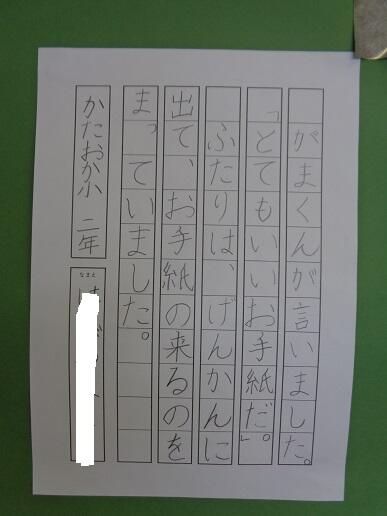 がまくんが言いました。
「とてもいいお手紙だ。」
ふたりは、げんかんに
出て、お手紙の来るのを
まっていました。
かたおか小 二年
なまえ